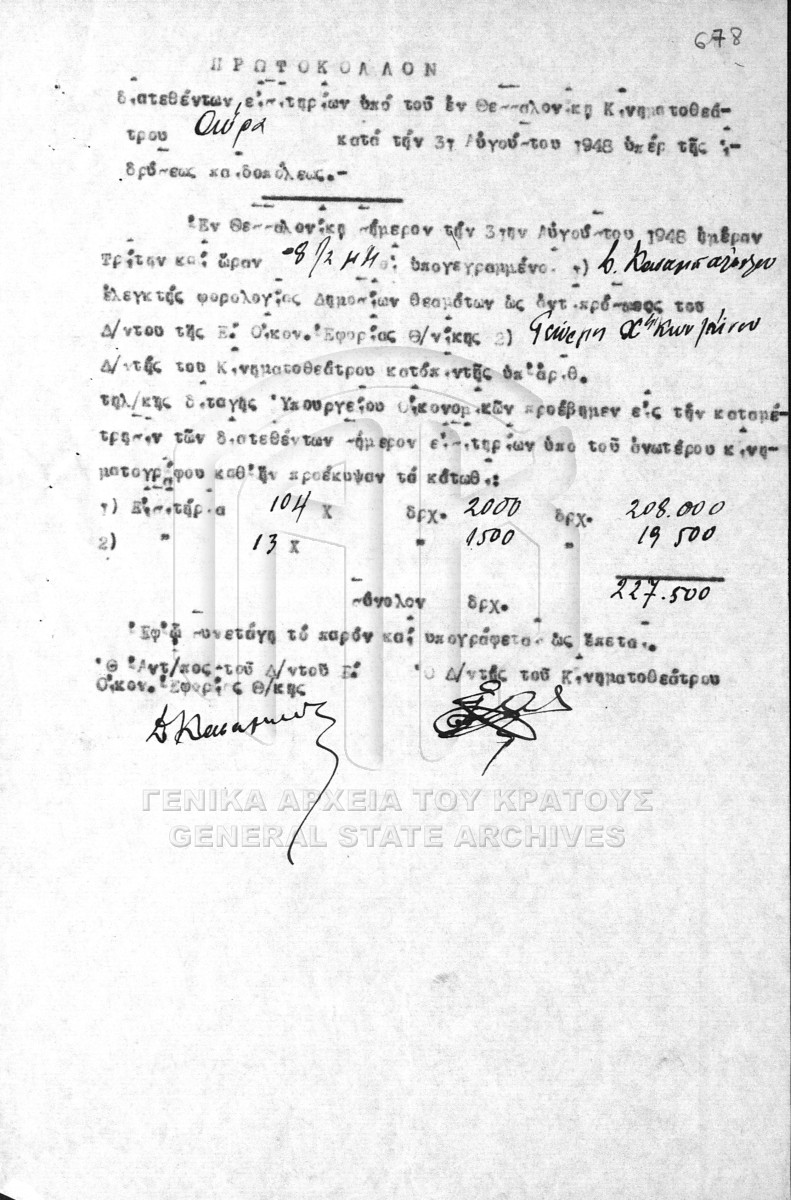 678
ΠΡΩΤΟΚΟΛΛΟΝ
διατεθέντων εἰσιτηρίων ὑπό τοῦ ἐν Θεσσαλονίκῃ Κινηματοθεά-
τρου Αὔρα κατά τήν 31 Αὐγούστου 1948 ὑπέρ τῆς ἱ-
δρύσεως παιδοπόλεως.-
Ἐν Θεσσαλονίκῃ σήμερον τήν 31ην Αὐγούστου 1948 ἡμέραν
Τρίτην καί ὥραν 8 1/2 μμ οἱ ὑπογεγραμμένοι 1)
ἐλεγκτής φορολογίας Δημοσίων Θεαμάτων ὡς ἀντιπρόσωπος του
Δ/ντου τῆς Ε! Οἰκον. Ἐφορίας Θ/νίκης 2)
Δ/ντής του Κινηματοθεάτρου κατόπιν τῆς ὑπ' ἀριθ.
τηλ/κης διαταγῆς Ὑπουργείου Οἰκονομικῶν προέβημεν εἰς τήν καταμέ-
τρησιν τῶν διατεθέντων σήμερον εἰσιτηρίων ὑπο τοῦ ἀνωτέρου κινη-
ματογράφου καθ' ἥν προέκυψαν τά κάτωθι:
1) Εἰσιτήρια 104 Χ δρχ. 2000 δρχ. 208.000
2) " 13 Χ " 1500 " 19 500
σύνολον δρχ. 227.500
Ἐφ' ᾧ συνετάγη τό παρόν καί υπογράφεται ὡς ἕπεται.
Ὁ Ἀντ/πος τοῦ Δ/ντοῦ Ε! Ὁ Δ/ντής τοῦ Κινηματοθεάτρου
Οἰκον. Ἐφορίας Θ/κης
ΓΕΝΙΚΑ ΑΡΧΕΙΑ ΤΟΥ ΚΡΑΤΟΥΣ
GENERAL STATE ARCHIVES